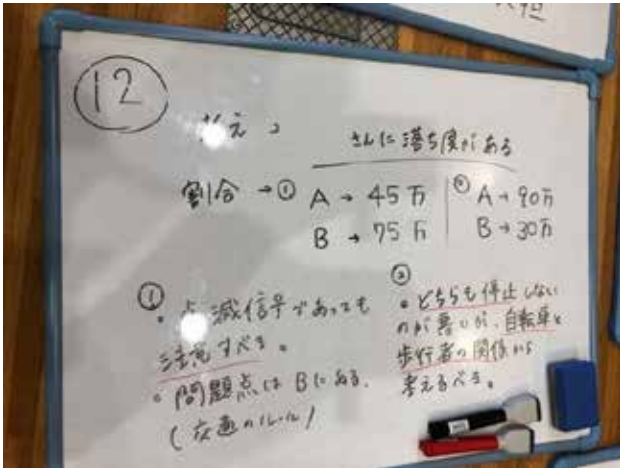 12
考え
さんに落ち度がある
割合 → ① A → 45万
B → 75万
② A → 90万
B → 30万
①
・点滅信号であっても
注意すべき。
・問題点は Bにある。
(交通のルール)
②
・どちらも停止しない
のが悪いが、自転車と
歩行者の関係から
考えるべき。